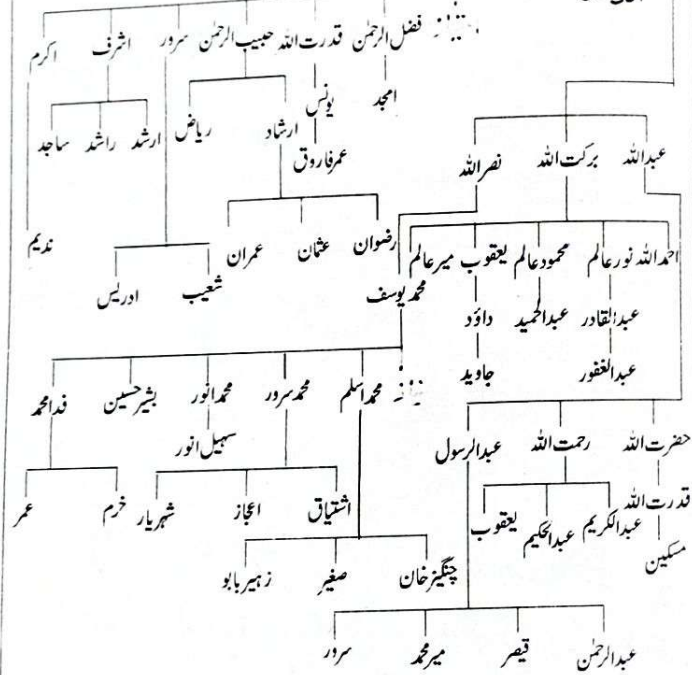 فضل الرحمٰن قدرت اللہ حبیب الرحمٰن سرور اشرف اکرم
امجد یونس
ارشاد ریاض ارشد راشد ساجد
عمر فاروق
عبداللہ برکت اللہ نصراللہ
رضوان عثمان عمران ندیم
احمد اللہ نور عالم محمود عالم یعقوب میر عالم
شعیب ادریس
محمد یوسف
عبدالقادر عبدالحمید داؤد
عبدالغفور جاوید
محمد اسلم محمد سرور محمد انور بشیر حسین فدا محمد
سہیل انور
حضرت اللہ رحمت اللہ عبدالرسول
قدرت اللہ عبدالکریم عبدالحکیم یعقوب
اشتیاق اعجاز شہریار خرم عمر
مسکین
چنگیز خان صغیر زہیر بابو
عبدالرحمٰن قیصر میر محمد سرور